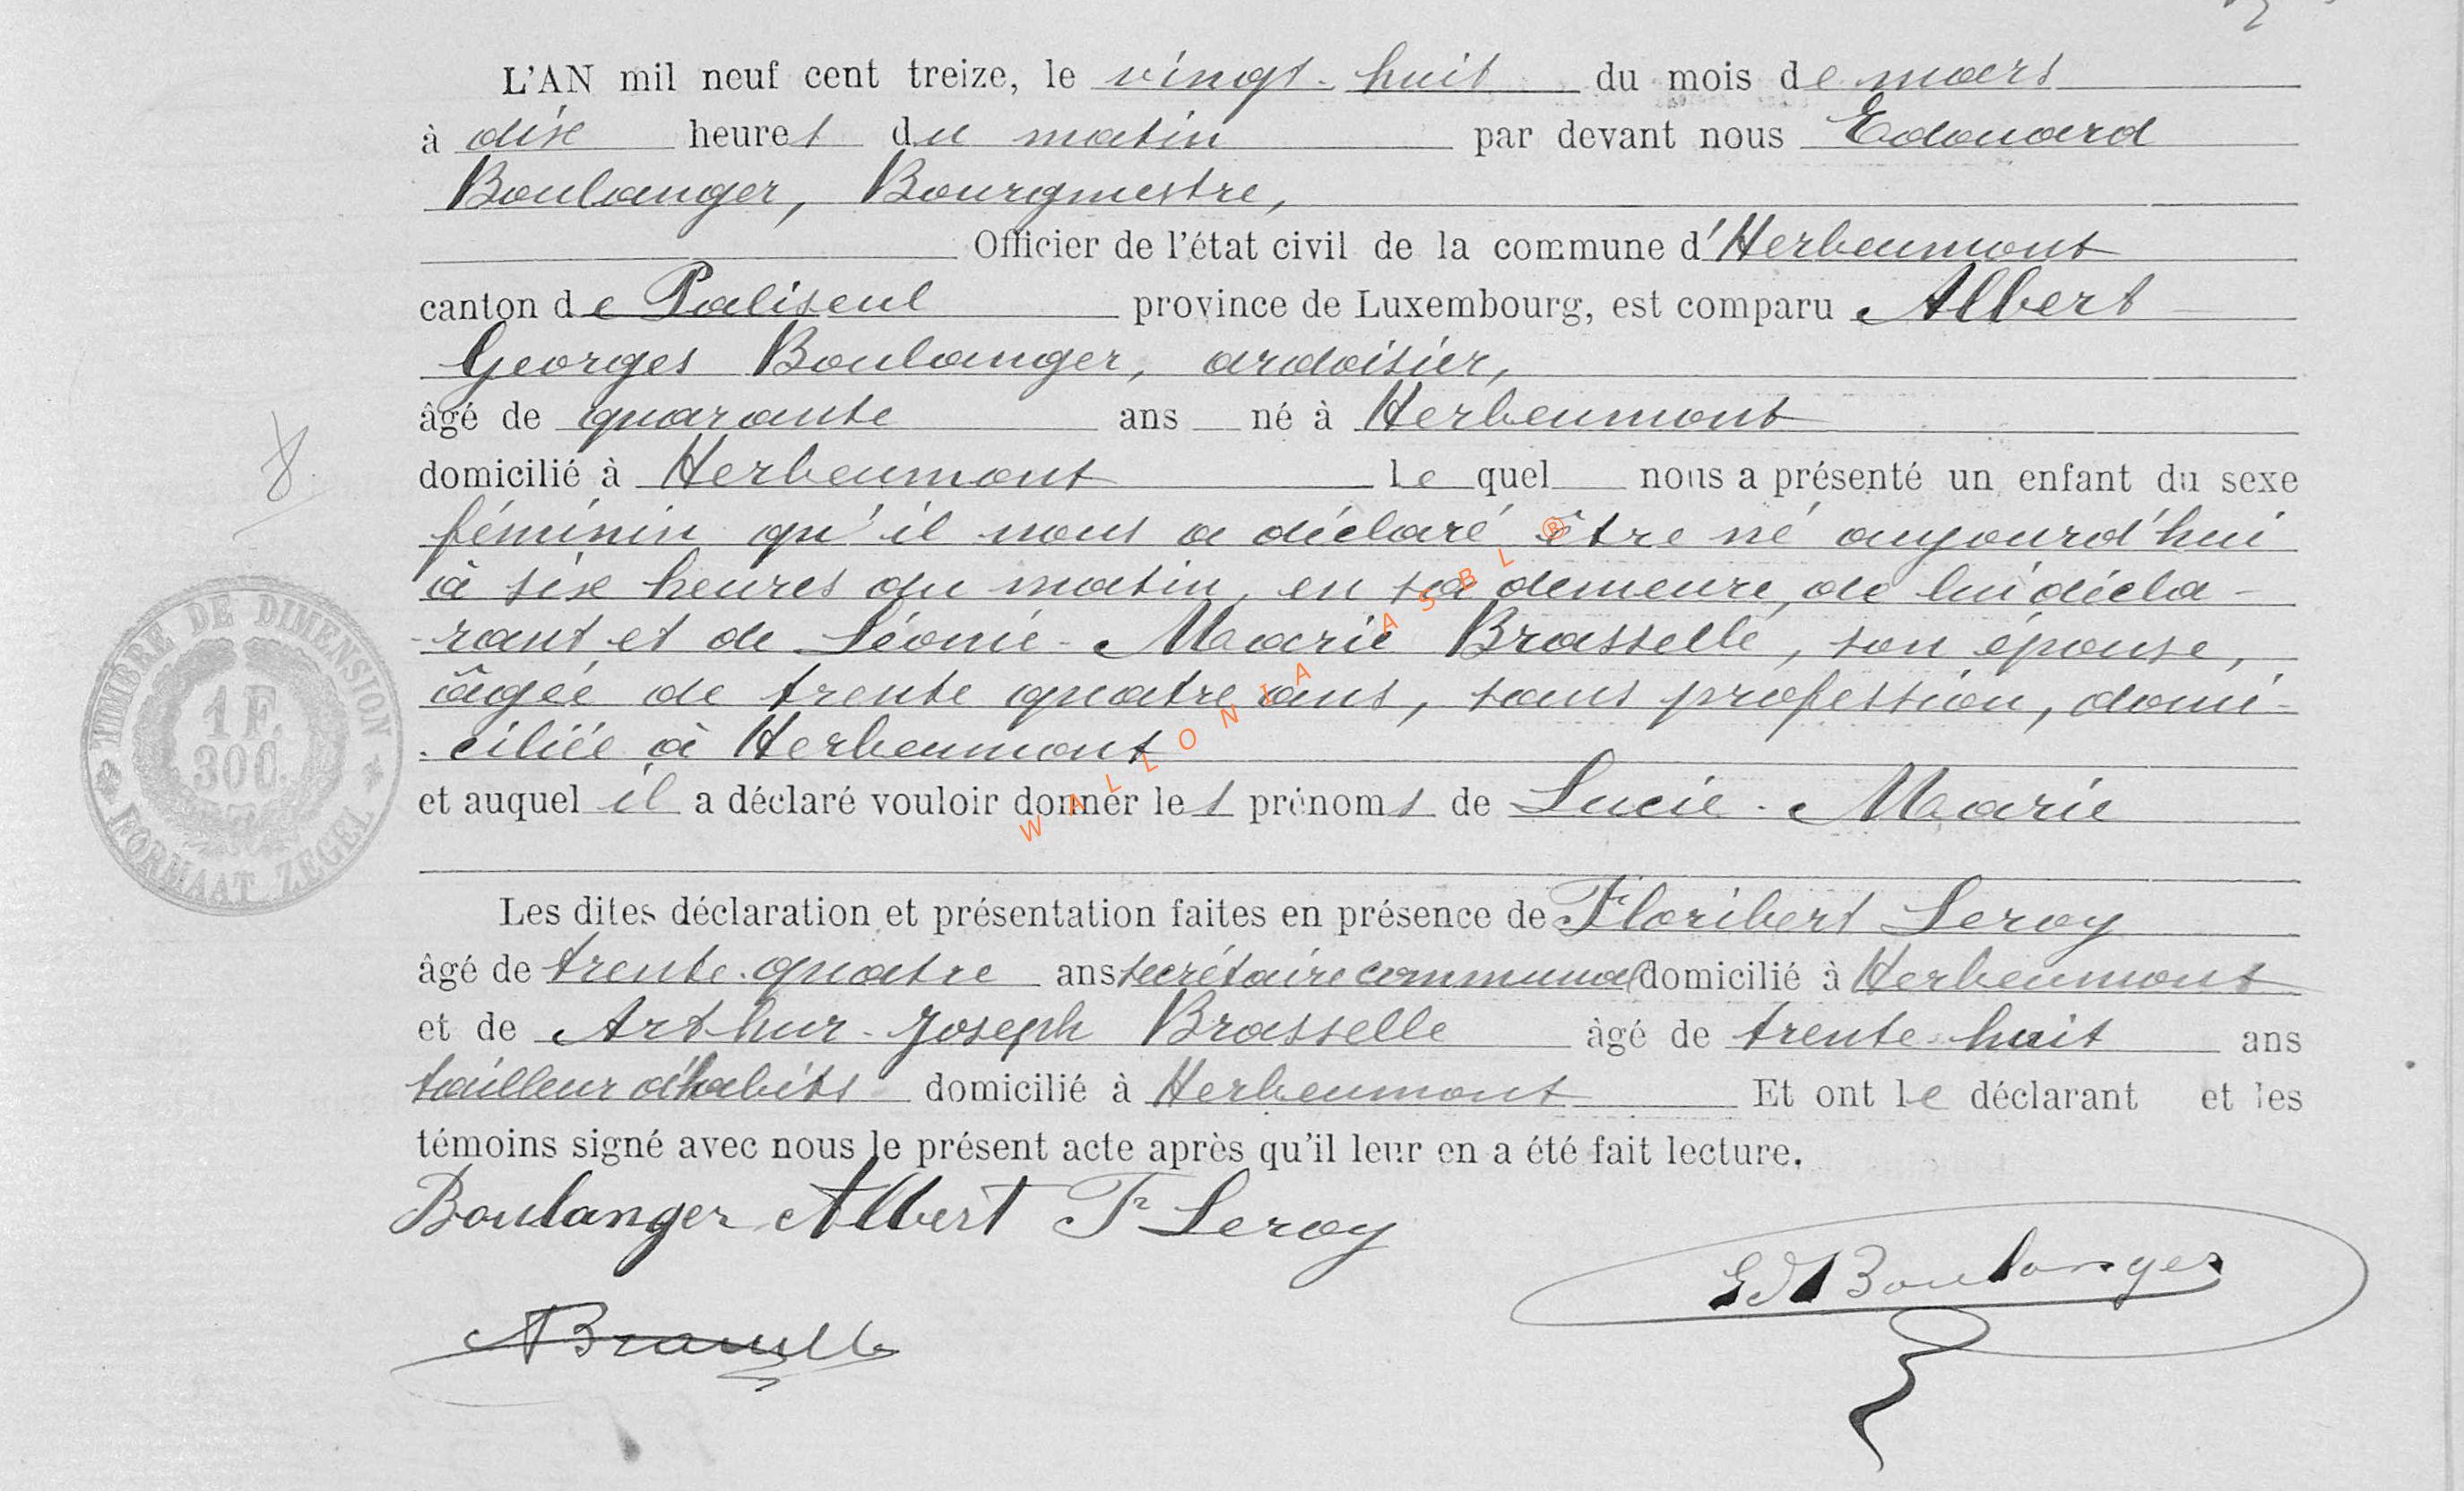 L'AN mil neuf cent treize, le vingt-huit du mois de mars
à dix heures du matin par devant nous Edouard
Boulanger, Bourgmestre,
Officier de l'état civil de la commune d'Herbeumont
canton de Paliseul province de Luxembourg, est comparu Albert
Georges Boulanger, ardoisier,
âgé de quarante ans né à Herbeumont
domicilié à Herbeumont lequel nous a présenté un enfant du sexe
féminin qu'il nous a déclaré être né aujourd'hui
à six heures du matin, en sa demeure, de lui décla-
rant et de Léonie-Marie Brasselle, son épouse,
âgée de trente quatre ans, sans profession, domi-
ciliée à Herbeumont
et auquel il a déclaré vouloir donner les prénoms de Lucie-Marie
Les dites déclaration et présentation faites en présence de Floribert Leroy
âgé de trente-quatre ans secrétaire communal domicilié à Herbeumont
et de Arthur-Joseph Brasselle âgé de trente-huit ans
tailleur d'habits domicilié à Herbeumont Et ont le déclarant et les
témoins signé avec nous le présent acte après qu'il leur en a été fait lecture.
Boulanger Albert F Leroy
Ed Boulanger
ABrasselle
8.
TIMBRE DE DIMENSION
1 F.
30 C.
FORMAAT ZEGEL
WALLONIA ASBL ®